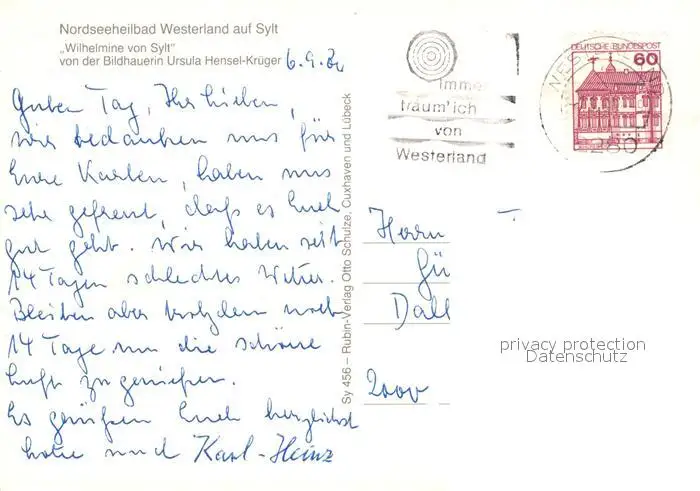 Nordseeheilbad Westerland auf Sylt
„Wilhelmine von Sylt"
von der Bildhauerin Ursula Hensel-Krüger
6.9.
Guten Tag, Ihr Lieben,
wir bedanken uns für
Eure Karten, haben uns
sehr gefreut, daß es Euch
gut geht. Wir haben seit
14 Tagen schlechtes Wetter.
Bleiben aber trotzdem noch
14 Tage um die schöne
Luft zu genießen.
Es grüßen Euch herzlichst
und Karl-Heinz
Sy 456 – Rubin-Verlag Otto Schulze, Cuxhaven und Lübeck
Imme
träum' ich
von
Westerland
DEUTSCHE BUNDESPOST
60
2280
Herrn
Gü
Dall
2000
privacy protection
Datenschutz